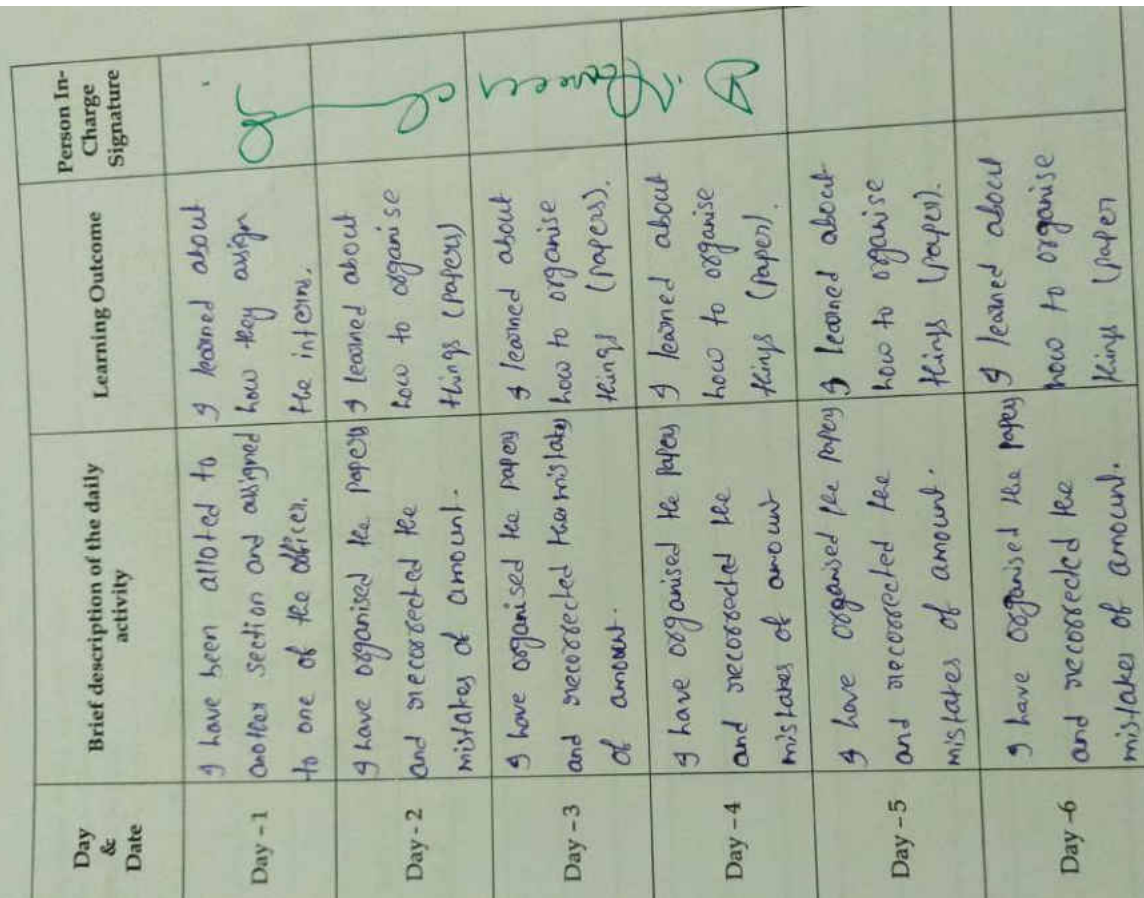 Day
&
Date
Brief description of the daily
activity
Learning Outcome
Person In-
Charge
Signature
Day - 1
I have been alloted to
another section and assigned
to one of the officer.
I learned about
how they assign
the interns.
Day - 2
I have organised the papers
and recorrected the
mistakes of amount.
I learned about
how to organise
things (papers)
Day - 3
I have organised the papers
and recorrected the mistakes
of amount.
I learned about
how to organise
things (papers).
Day - 4
I have organised the papers
and recorrected the
mistakes of amount
I learned about
how to organise
things (paper).
Day - 5
I have organised the papers
and recorrected the
mistakes of amount.
I learned about
how to organise
things (paper).
Day -6
I have organised the papers
and recorrected the
mistakes of amount.
I learned about
how to organise
things (paper